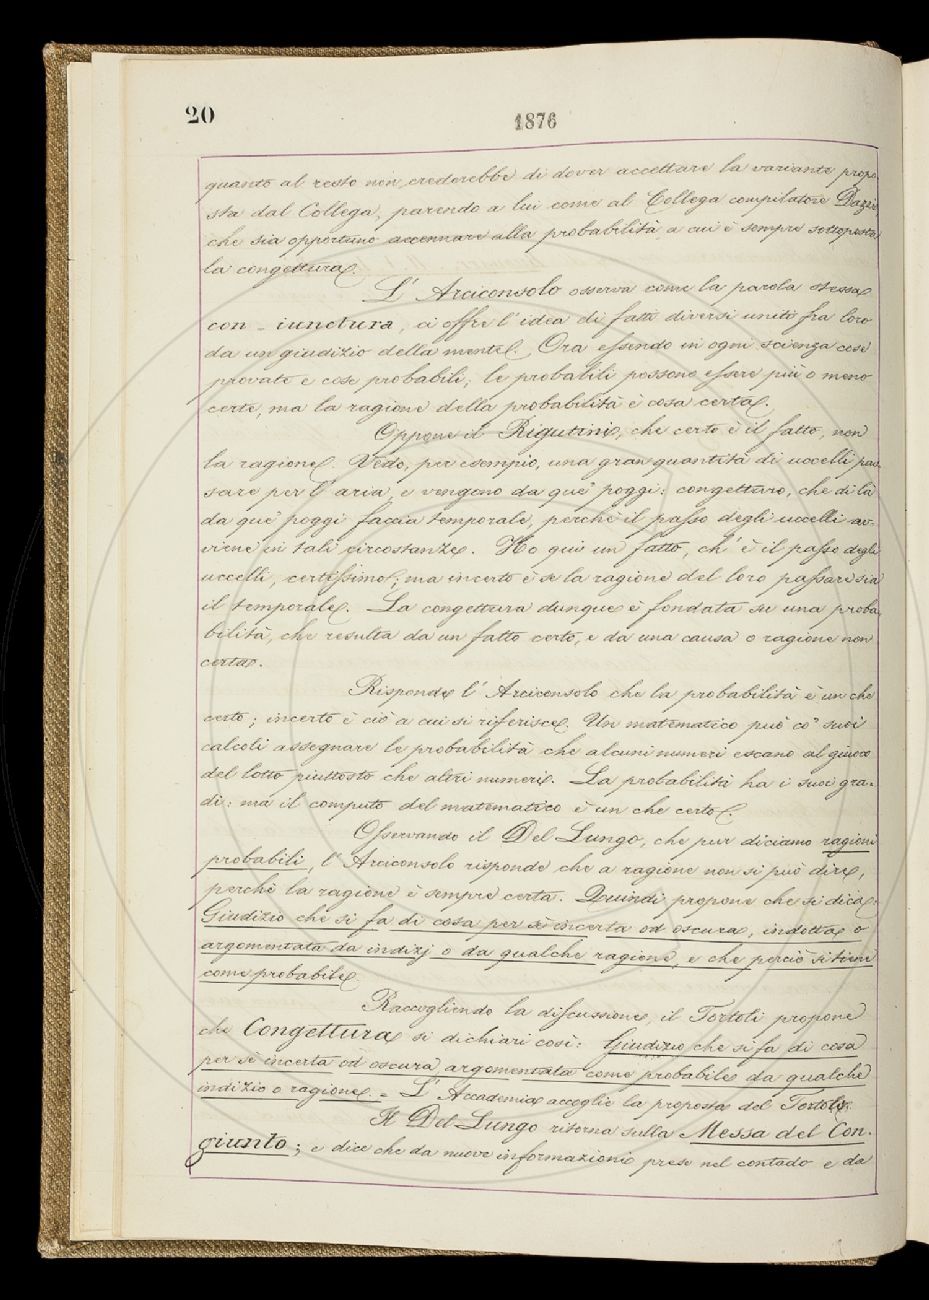 20
1876
quanto al resto non crederebbe di dover accettare la variante propo-
sta dal Collega, parendo a lui come al Collega compilatore Dazzi
che sia opportuno accennare alla probabilità, a cui è sempre sottoposta
la congettura.
L' Arciconsolo osserva come la parola stessa
con - iunctura, ci offre l' idea di fatti diversi uniti fra loro
da un giudizio della mente. Ora essendo in ogni scienza cose
provate e cose probabili; le probabili possono essere più o meno
certe, ma la ragione della probabilità è cosa certa.
Oppone il Rigutini, che certo è il fatto, non
la ragione. Vedo, per esempio, una gran quantità di uccelli pas-
sare per l' aria, e vengono da que' poggi: congetturo, che di là
da que' poggi faccia temporale, perchè il passo degli uccelli av-
viene in tali circostanze. Ho qui un fatto, ch' è il passo degli
uccelli, certissimo; ma incerto è se la ragione del loro passare sia
il temporale. La congettura dunque è fondata su una proba-
bilità, che resulta da un fatto certo, e da una causa o ragione non
certa.
Risponde l' Arciconsolo che la probabilità è un che
certo; incerto è ciò a cui si riferisce. Un matematico può co' suoi
calcoli assegnare le probabilità che alcuni numeri escano al giuoco
del lotto piuttosto che altri numeri. La probabilità ha i suoi gra-
di: ma il computo del matematico è un che certo.
Osservando il Del Lungo, che pur diciamo ragioni
probabili, l' Arciconsolo risponde che a ragione non si può dire,
perchè la ragione è sempre certa. Quindi propone che si dica:
Giudizio che si fa di cosa per sè incerta od oscura, indotta o
argomentata da indizj o da qualche ragione, e che perciò si tiene
come probabile.
Raccogliendo la discussione, il Tortoli propone
che Congettura si dichiari così: Giudizio che si fa di cosa
per sè incerta od oscura, argomentata come probabile da qualche
indizio o ragione. = L' Accademia accoglie la proposta del Tortoli.
Il Del Lungo ritorna sulla Messa del Con-
giunto; e dice che da nuove informazioni prese nel contado e da